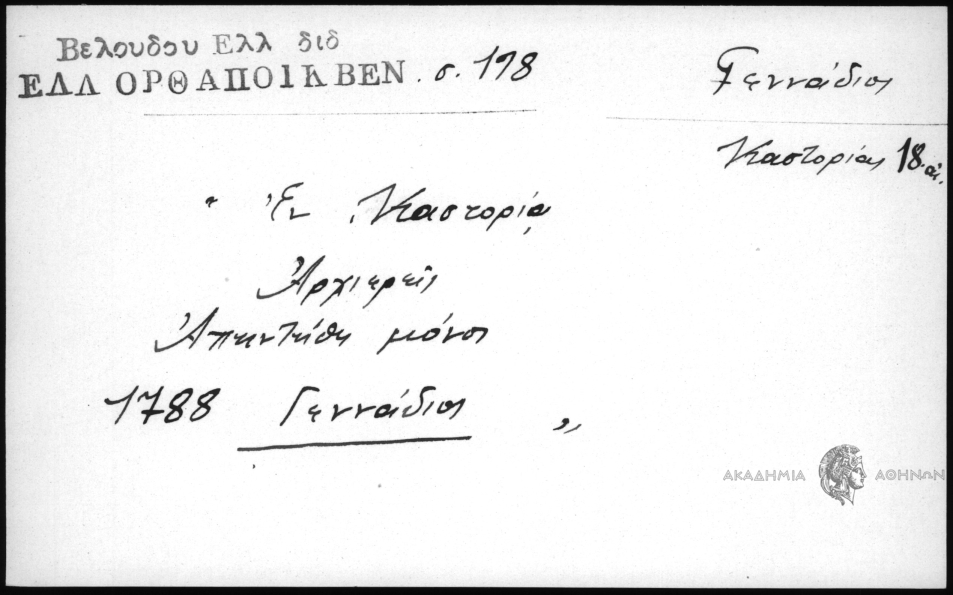 Βελουδου Ελλ διδ
ΕΛΛ ΟΡΘ ΑΠΟΙΚ ΒΕΝ. σ. 178
Γεννάδιος
Καστορίας 18. αι.
" Ἐν Καστορίᾳ
Ἀρχιερεῖς
Ἀπηντήθη μόνος
1788 Γεννάδιος "
ΑΚΑΔΗΜΙΑ ΑΘΗΝΩΝ